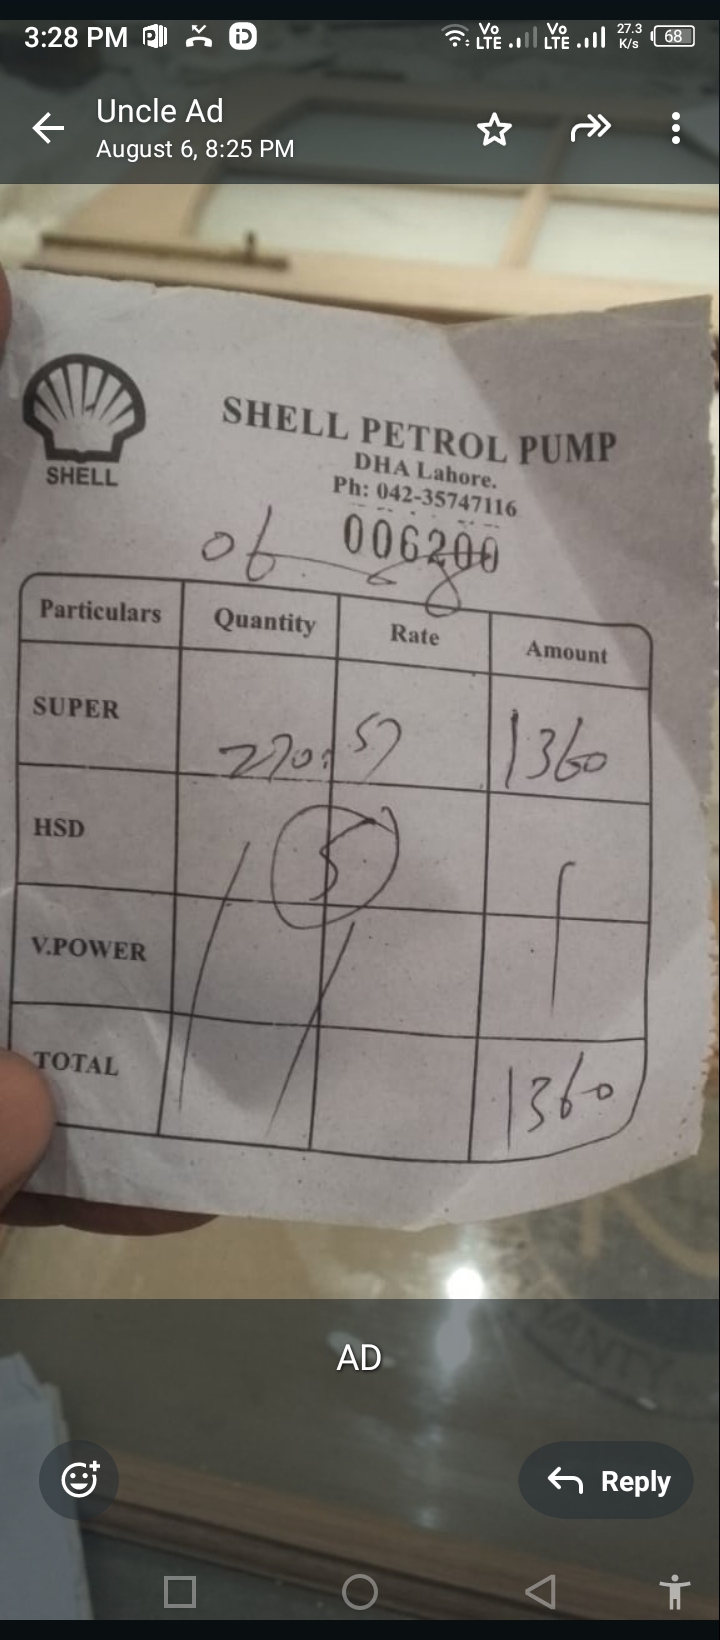 3:28 PM
Vo LTE Vo LTE 27.3 K/s 68
Uncle Ad
August 6, 8:25 PM
SHELL
SHELL PETROL PUMP
DHA Lahore.
Ph: 042-35747116
006200
06 8
Particulars Quantity Rate Amount
SUPER 270: 57 1360
HSD 5
V.POWER
TOTAL 1360
ANTY
AD
Reply